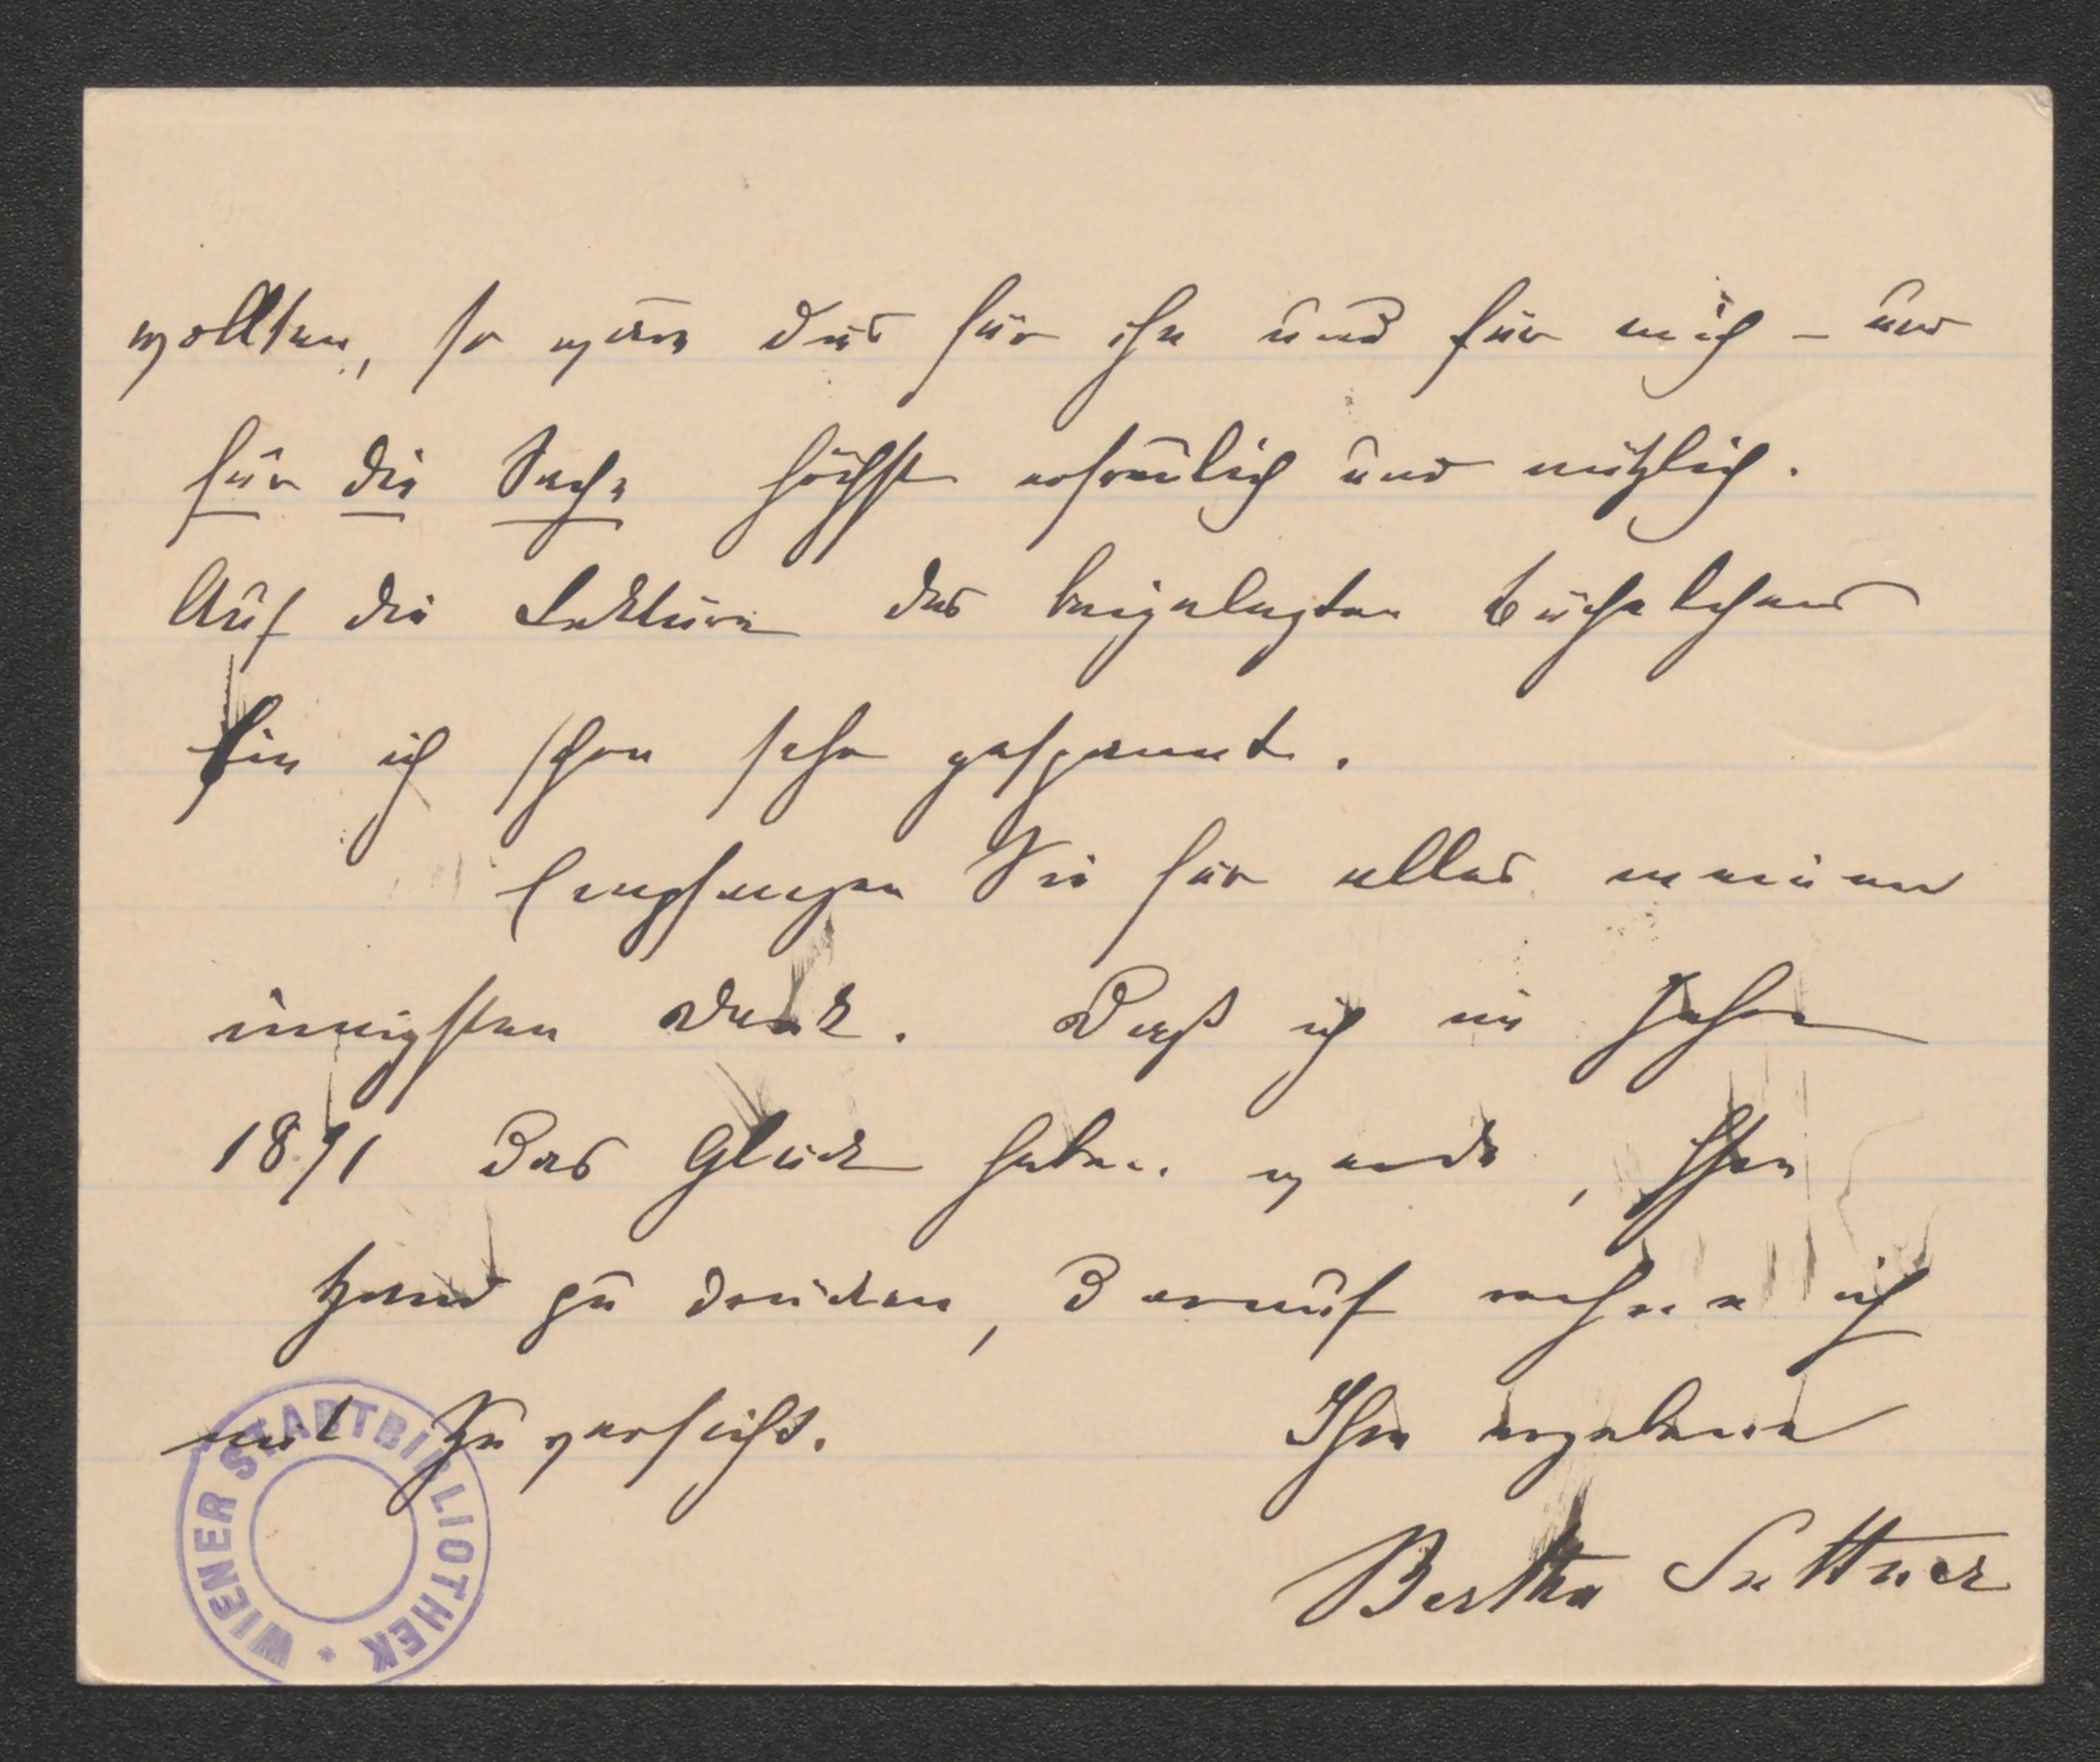 wollten, so wäre das für ihn und für mich – und
für die Sache höchst erfreulich und nützlich.
Auf die Lektüre des beigelegten Büchelchens
bin ich schon sehr gespannt.
Empfangen Sie für alles meinen
innigsten Dank. Daß ich im Jahre
1891 das Glück haben werde, Ihre
Hand zu drücken, darauf rechne ich
mit Zuversicht. Ihre ergebene
Bertha Suttner
WIENER STADTBIBLIOTHEK *